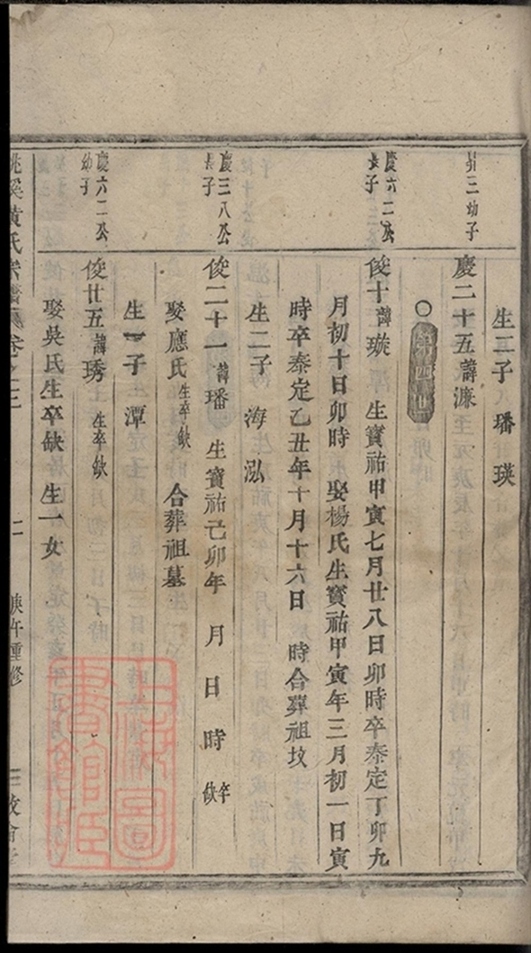 生二子 璠瑛
昇三幼子
慶二十五諱濂
○第四世
慶六二公
長子
俊十諱璇 生寶祐甲寅七月廿八日卯時卒泰定丁卯九
月初十日卯時 娶楊氏生寶祐甲寅年三月初一日寅
時卒泰定乙丑年十月十六日 時合葬祖坟
生二子 海泓
慶三八公
長子
俊二十一諱璠 生寶祐己卯年 月 日 時 卒缺
娶應氏生卒缺 合葬祖墓
生一子 潭
慶六二公
幼子
俊廿五諱琇 生卒缺
娶吳氏生卒缺 生一女
黃氏宗譜 卷之三
庚午重修
上海圖書館藏